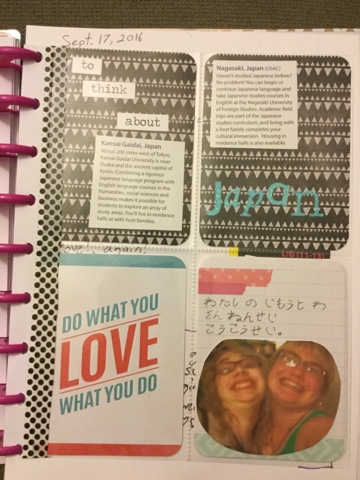 Sept. 17, 2016
to
think
about
Kansai Gaidai, Japan
About 200 miles west of Tokyo,
Kansai Gaidai University is near
Osaka and the ancient capital of
Kyoto. Combining a rigorous
Japanese language program with
English language courses in the
humanities, social sciences and
business makes it possible for
students to explore an array of
study areas. You'll live in residence
halls or with host families.
Nagasaki, Japan (USAC)
Haven't studied Japanese before?
No problem! You can begin or
continue Japanese language and
take Japanese studies courses in
English at the Nagasaki University
of Foreign Studies. Academic field
trips are part of the Japanese
studies curriculum, and living with
a host family completes your
cultural immersion. Housing in
residence halls is also available.
Japan
again!
(11-13)
DO WHAT YOU
LOVE
WHAT YOU DO
わたし の じもうと わ
さん ねんせい
こうこうせい。